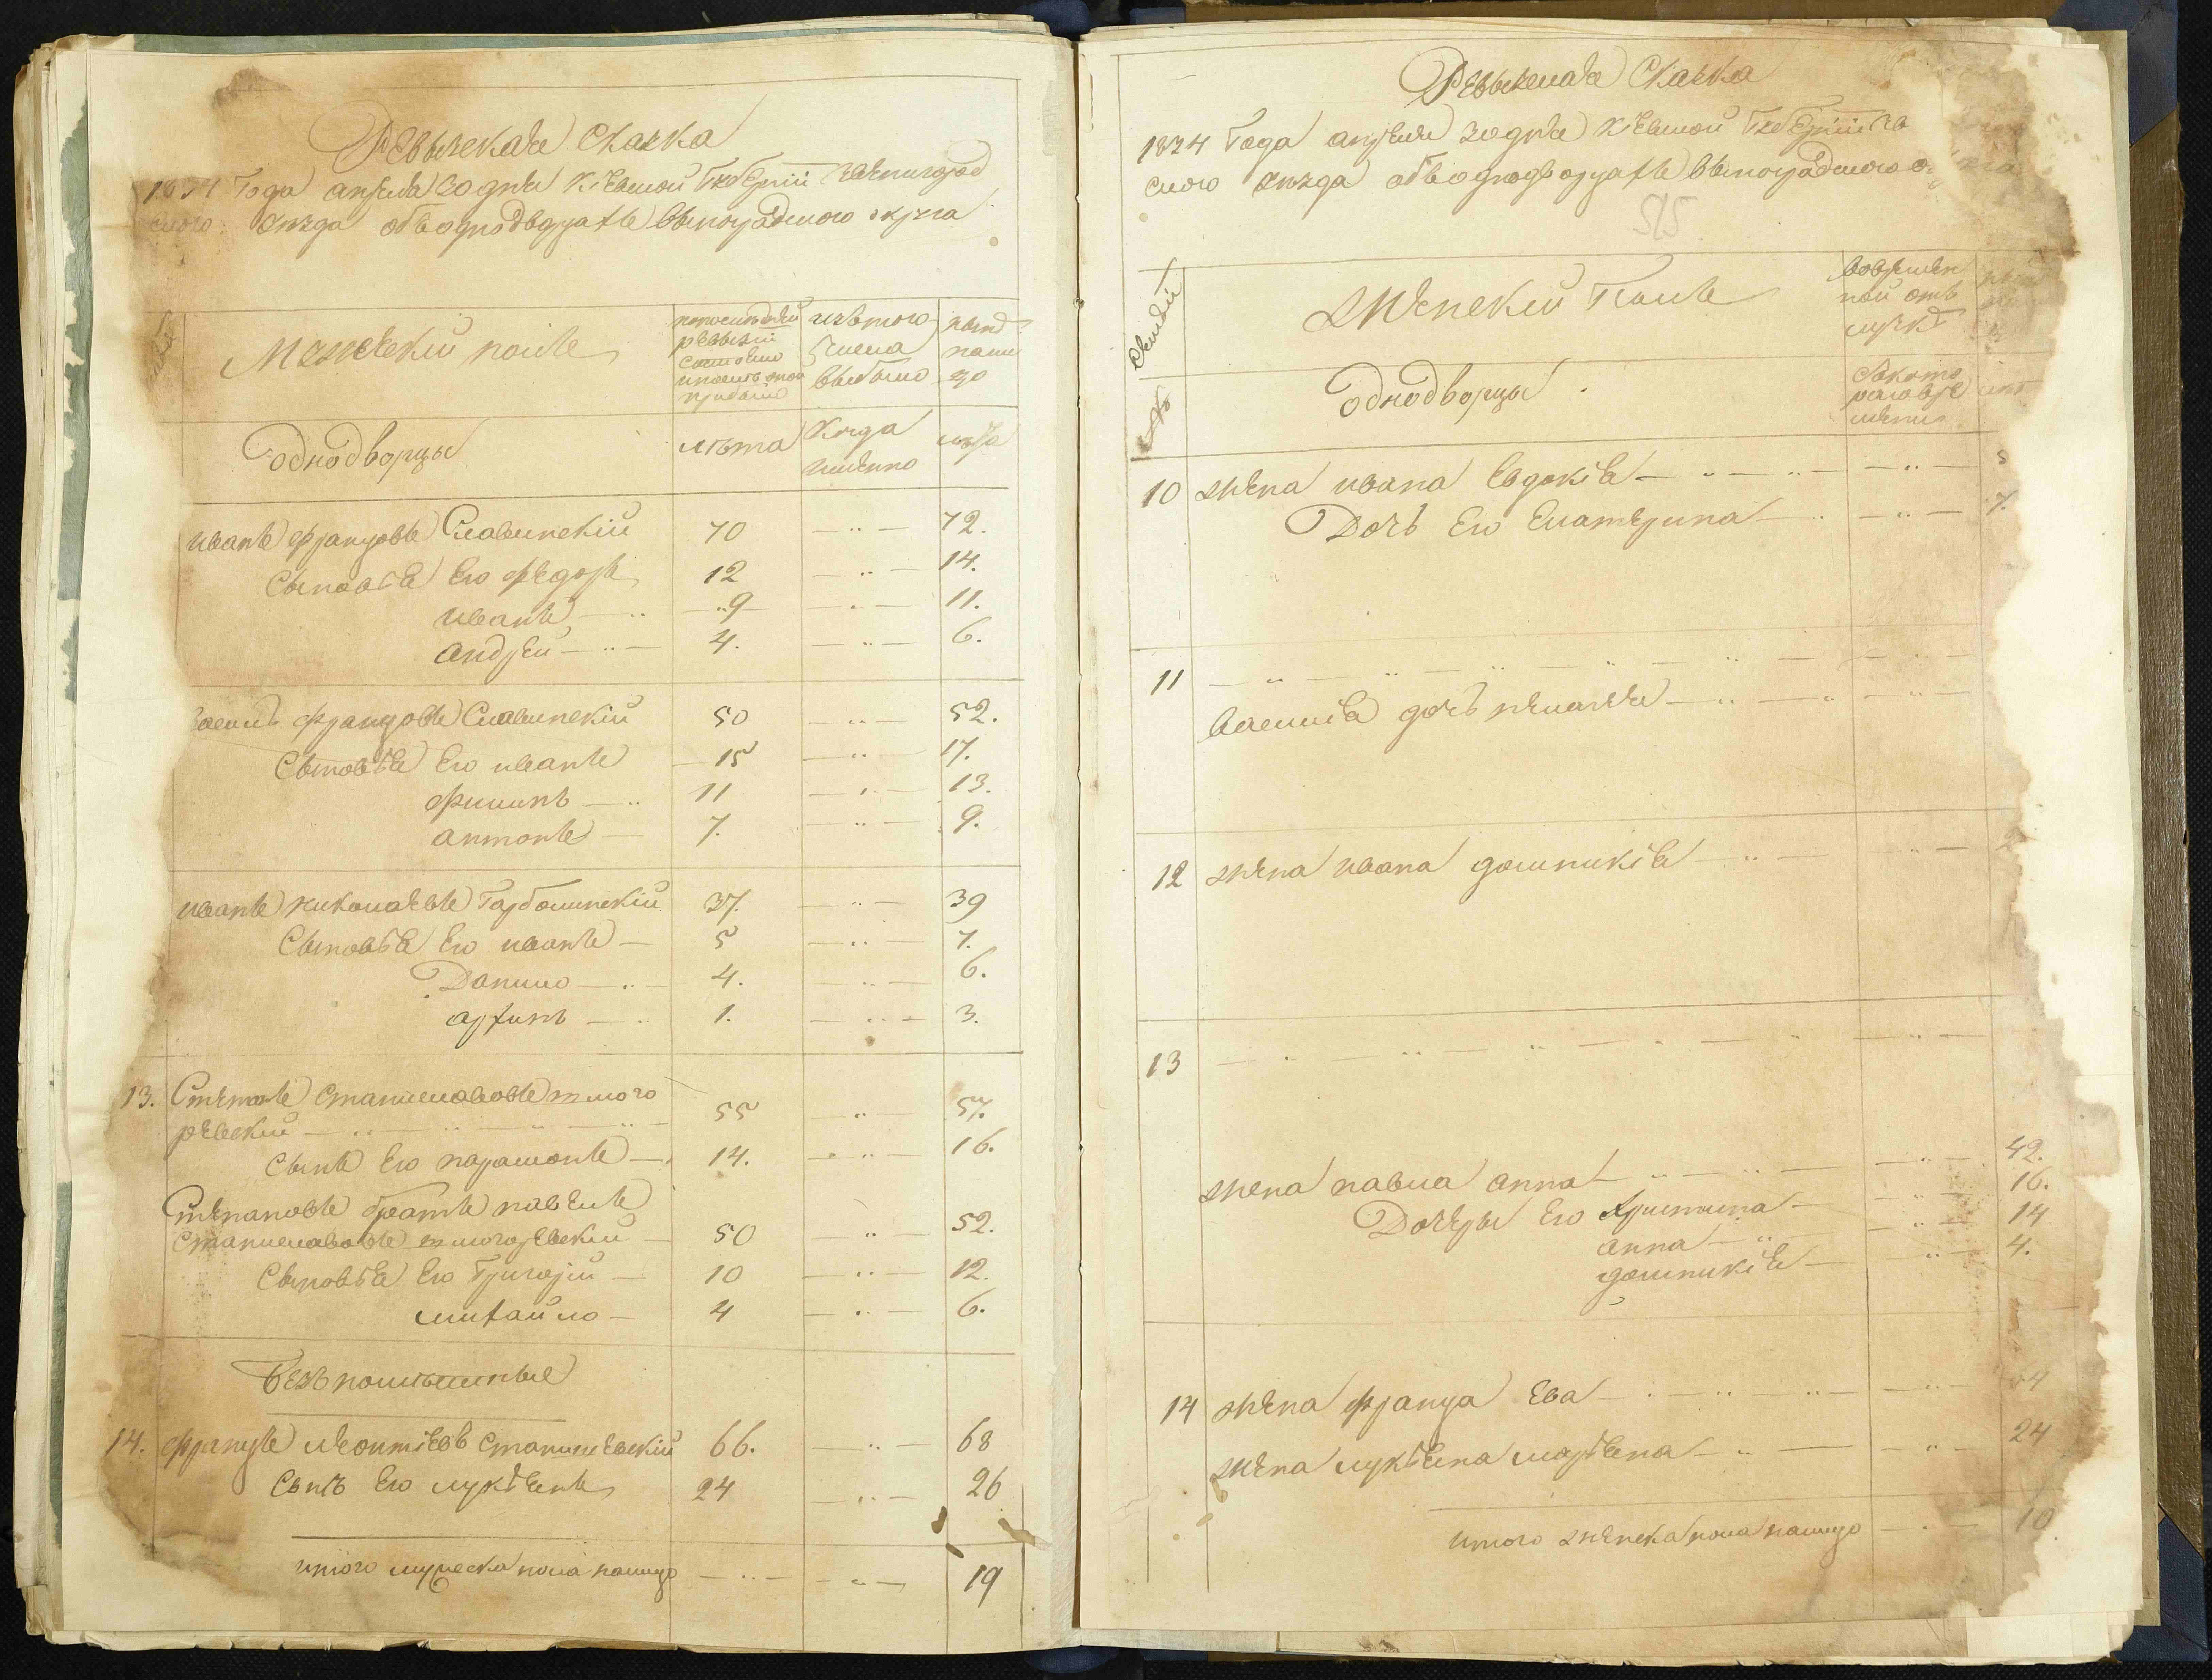 Ревизская Сказка
1834 года апреля 30 дня Киевской Губернии Звенигород
ского уезда объ однодворцахъ Виноградского округа
Мужеский полъ
по последней
ревизии
состояло
и после того
прибыло
изъ того
числа
выбыло
ныне
на лицо
Однодворцы
лета
Когда
именно
лета
Иванъ Францовъ Славинский 70 72.
Сыновья Его Федоръ 12 14.
Иванъ 9 11.
Андрей 4. 6.
Василь Францовъ Славинский 50 52.
Сыновья Его Иванъ 15 17.
Филипъ 11 13.
Антонъ 7. 9.
Иванъ Николаевъ Гарболинский 37. 39
Сыновья Его Иванъ 5 7.
Данило 4. 6.
Архипъ 1. 3.
13. Степанъ Станиславовъ
ревский 55 57.
Сынъ Его Парамонъ 14. 16.
Степановъ братъ Павелъ
Станиславовъ 50 52.
Сыновья Его Григорий 10 12.
Михайло 4 6.
Безпоместные
14. Францъ Леонтиевъ Станишевский 66. 68
Сынъ Его Лукиянъ 24 26
Итого мужеска пола налицо 19
Ревизская Сказка
1834 года апреля 30 дня Киевской Губернии Зв
ского уезда объ однодворцахъ Виноградского о
515
Женский Полъ
Однодворцы
10 Жена Ивана Евдокия
Дочь Его Екатерина 7.
11
Василия дочь Пелагея
12 Жена Ивана Домникия
13
Жена Павла Анна 42.
Дочеры Его Христина 16.
Анна 14
Домникия 4.
14 Жена Франца Ева
Жена Лукияна Марияна 24
Итого женска пола налицо 10